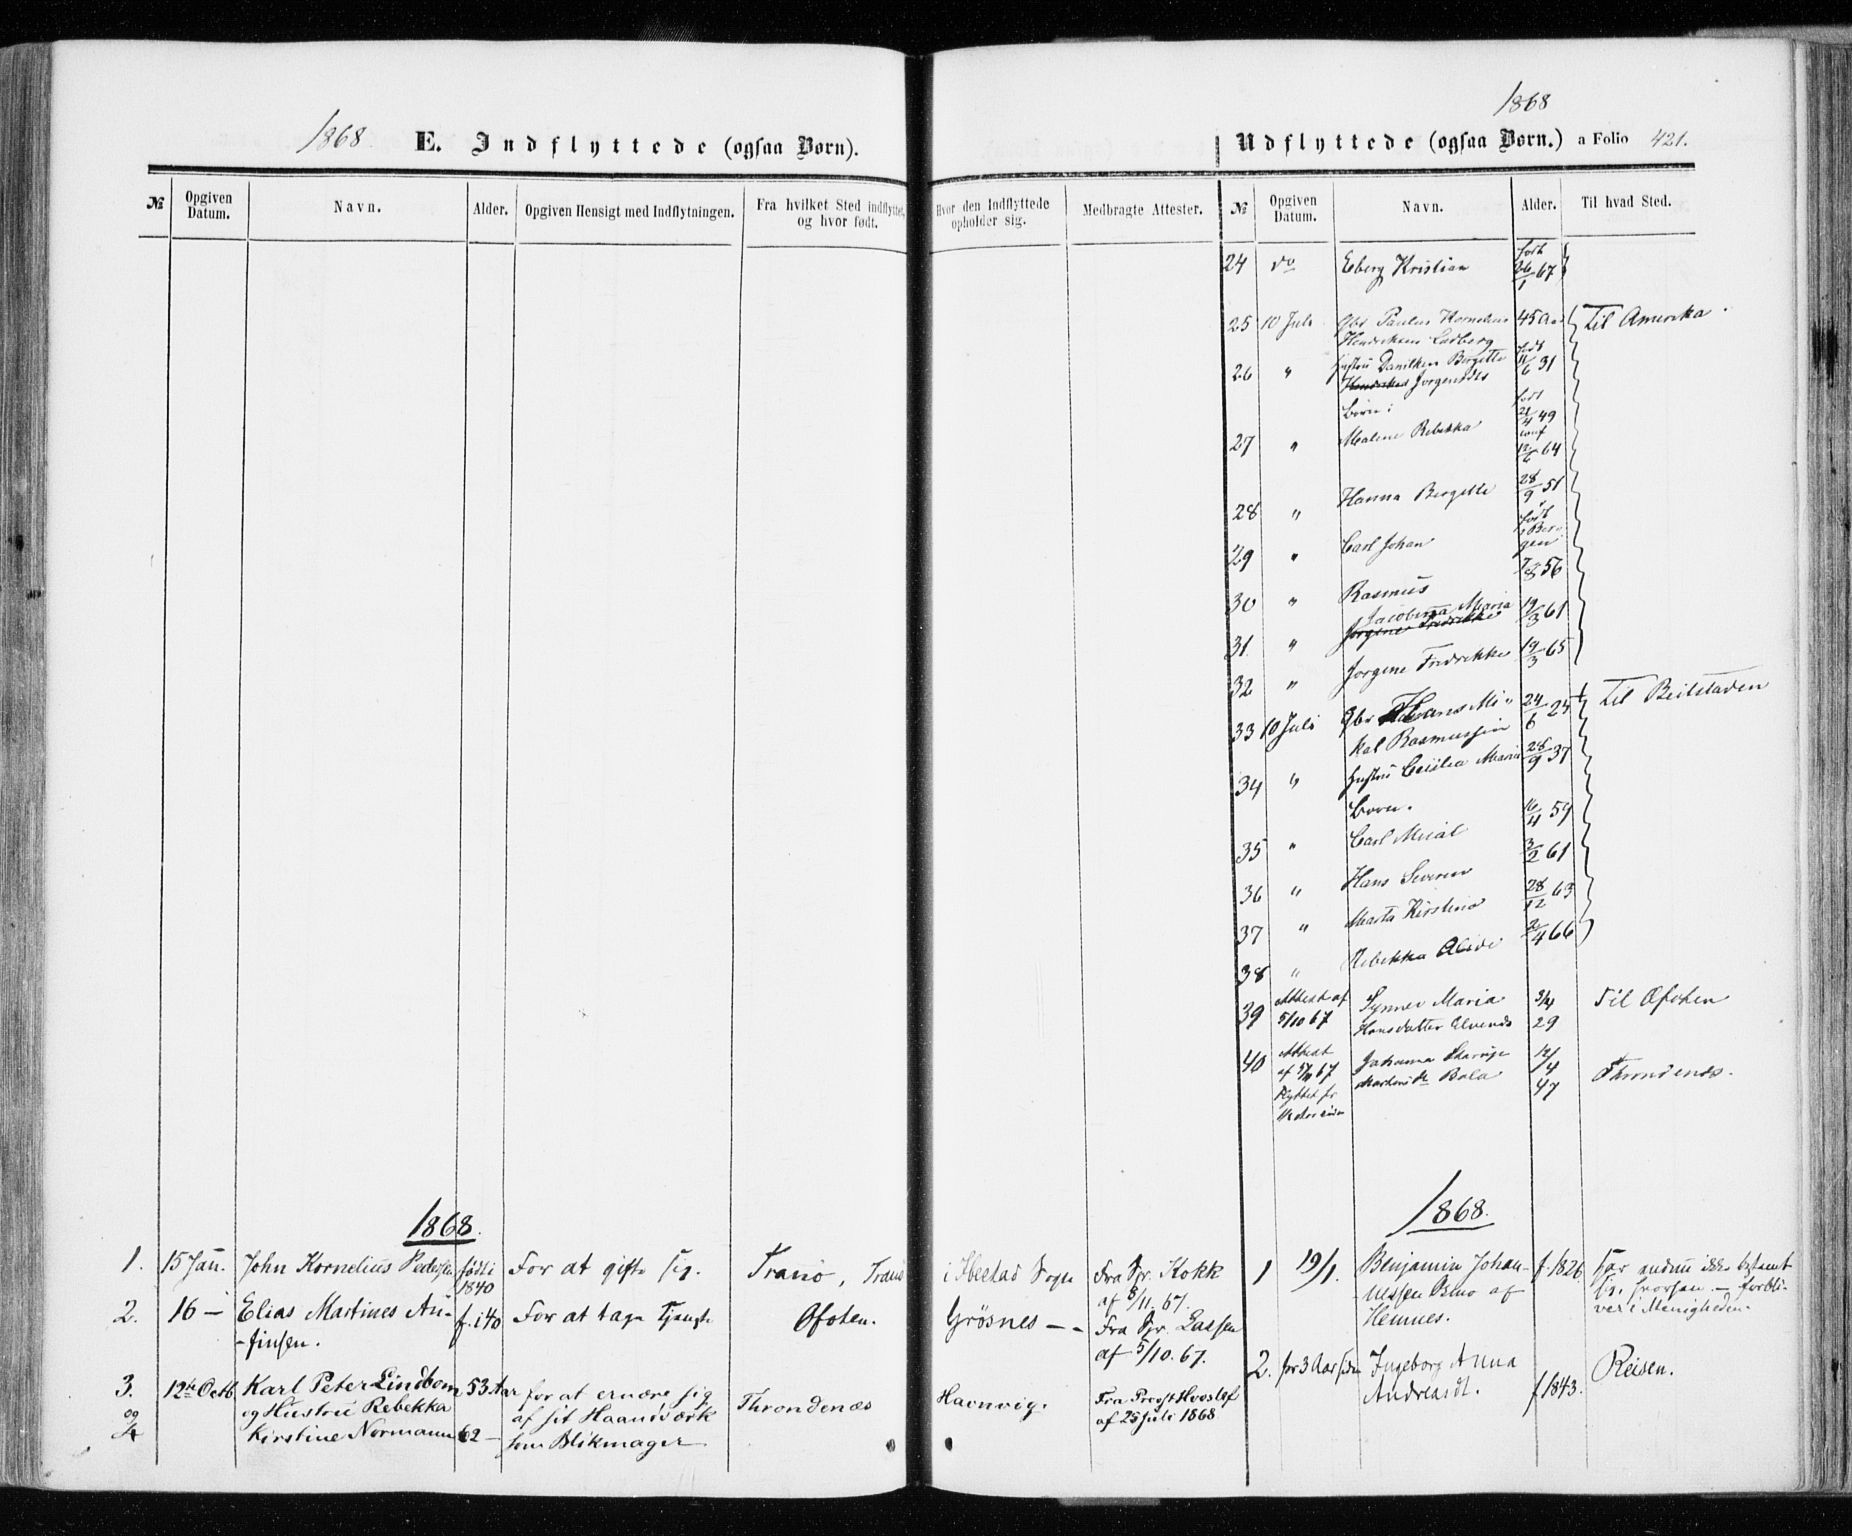 1868
E. Indflyttede (ogsaa Børn).
№ Opgiven Datum. Navn. Alder. Opgiven Hensigt med Indflytningen. Fra hvilket Sted indflyttet, og hvor født.
1868.
1. 15 Jan. John Kornelius Pedersen født i 1840 For at gifte sig. Tranø, Tranø
2. 16 — Elias Martines An-
finsen. f. i 40 For at tage Tjeneste Ofoten.
3. 12te Octb. Karl Peter Lindbom 53 Aar for at ernære sig Throndenæs
og og Hustru Rebekka af sit Haandværk
4 Kirstine Normann 62 — som Blikmager
1868
Udflyttede (ogsaa Børn.) a Folio 421.
Hvor den Indflyttede opholder sig. Medbragte Attester. № Opgiven Datum. Navn. Alder. Til hvad Sted.
24 do Eberg Kristian født 26/1 67
25 10 Juli Gbr Paulus Kornelius 45 Aar Til Amerika.
Hendriksen
26 " Hustru Danilken Bergette født 11/6 31
Jørgensdtr
Børn:
27 " Malene Rebekka født 21/4 49
conf 12/6 64
28 " Hanna Bergette 28/9 51
29 " Carl Johan født i Ber-
gen 7/8 56
30 " Rasmus
31. " Jacobina Maria 12/3 61
Jørgene Fredrikke
32 " Jørgene Fredrikke 19/3 65
33 10 Juli Gbr Hans Mi- 24/6 25 Til Beitstaden
kal Rasmussen
34 " Hustru Cecilia Maria 28/9 37
Børn.
35 " Carl Mical 16/4 59
36 " Hans Severin 3/2 61
37 " Marta Kirstina 28/12 63
38 " Rebekka Alide 2/4 66
39 Attest af Synnev Maria 3/4 Til Ofoten
5/10 67 Hansdatter 29
40 Attest Johanna 12/4 Throndenæs.
af 5/11 67 Bola 47
flyttet for
1868.
i Ibestad Sogn Fra Spr. Kokk
af 8/11. 67.
Grøsnes — Fra Spr. Lassen
af 5/10. 67.
Havnvig. Fra Provst Hvoslef
af 25 Juli 1868
1 19/1. Benjamin Johan- f. 1826 har endnu ikke bestemt
nessen af sig, hvorhen. — forbli-
Hemnes. ver i Menigheden.
2. for 3 Aar siden Ingeborg Anna Reisen.
Andreasdt. f 1843.